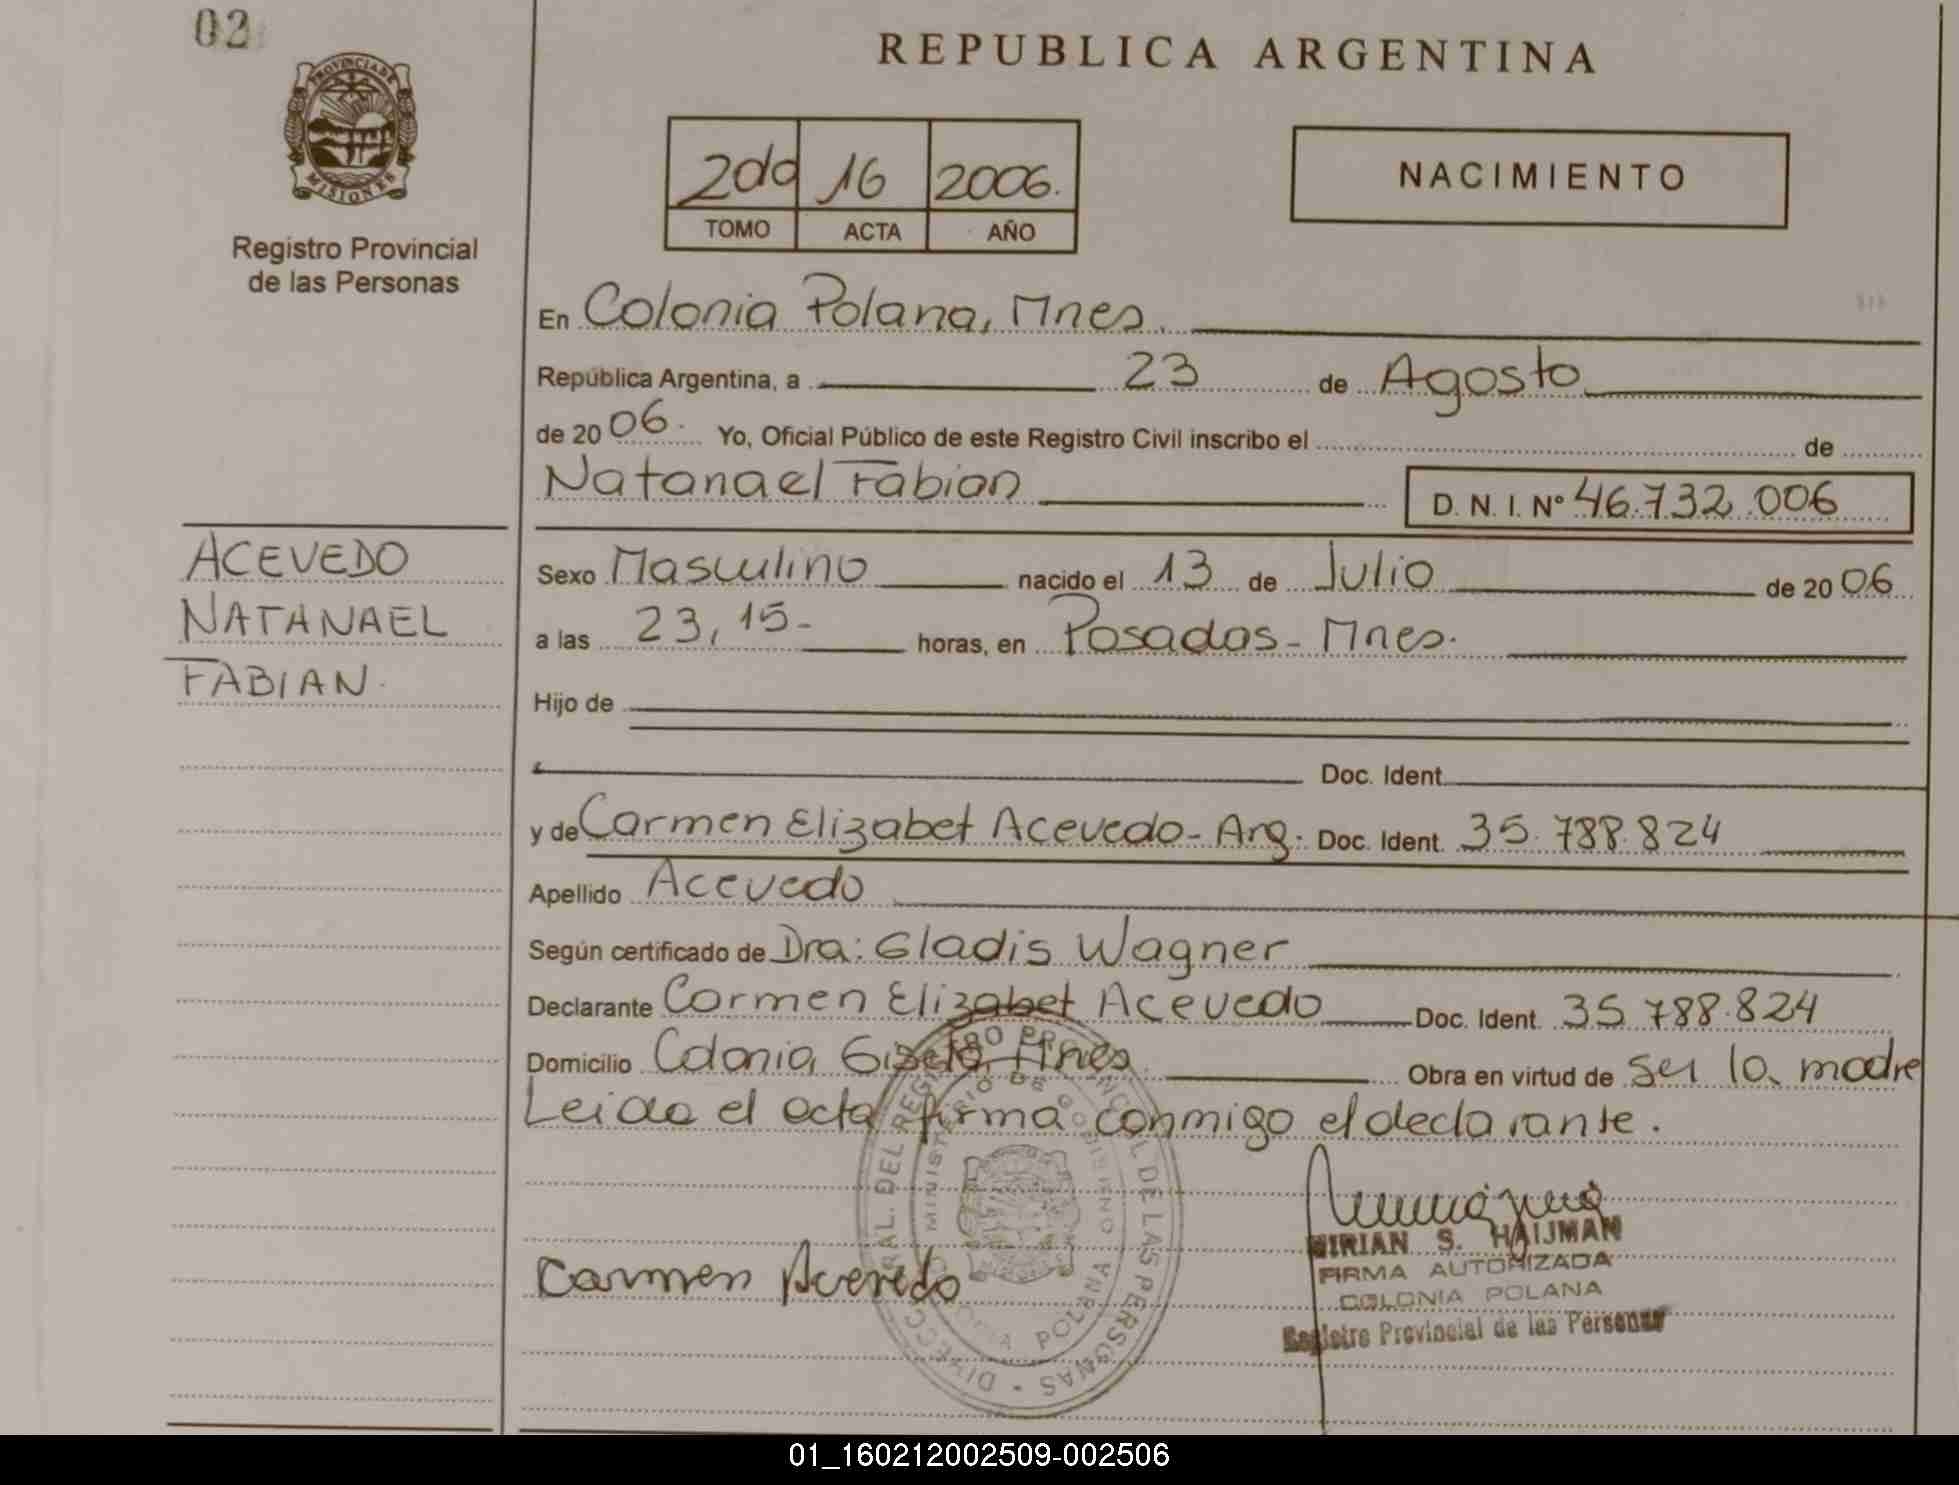 02
PROVINCIA DE
MISIONES
Registro Provincial
de las Personas
REPUBLICA ARGENTINA
2do 16 2006.
TOMO ACTA AÑO
NACIMIENTO
En Colonia Polana, Mnes.
República Argentina, a 23 de Agosto
de 2006. Yo, Oficial Público de este Registro Civil inscribo el de
Natanael Fabian D. N. I. Nº 46.732.006
ACEVEDO
NATANAEL
FABIAN.
Sexo Masculino nacido el 13 de Julio de 2006
a las 23,15- horas, en Posadas- Mnes.
Hijo de
Doc. Ident.
y de Carmen Elizabet Acevedo- Arg. Doc. Ident. 35.788.824
Apellido Acevedo
Según certificado de Dra: Gladis Wagner
Declarante Carmen Elizabet Acevedo Doc. Ident. 35 788.824
Domicilio Colonia Gisela, Mnes. Obra en virtud de ser la madre
Leida el acta firma conmigo el declarante.
DIRECC GRAL. DEL REGISTRO PROVINCIAL DE LAS PERSONAS
MINISTERIO DE GOBIERNO
COLONIA POLANA
Carmen Acevedo
MIRIAN S. HAIJMAN
FIRMA AUTORIZADA
COLONIA POLANA
Registro Provincial de las Personas
01_160212002509-002506